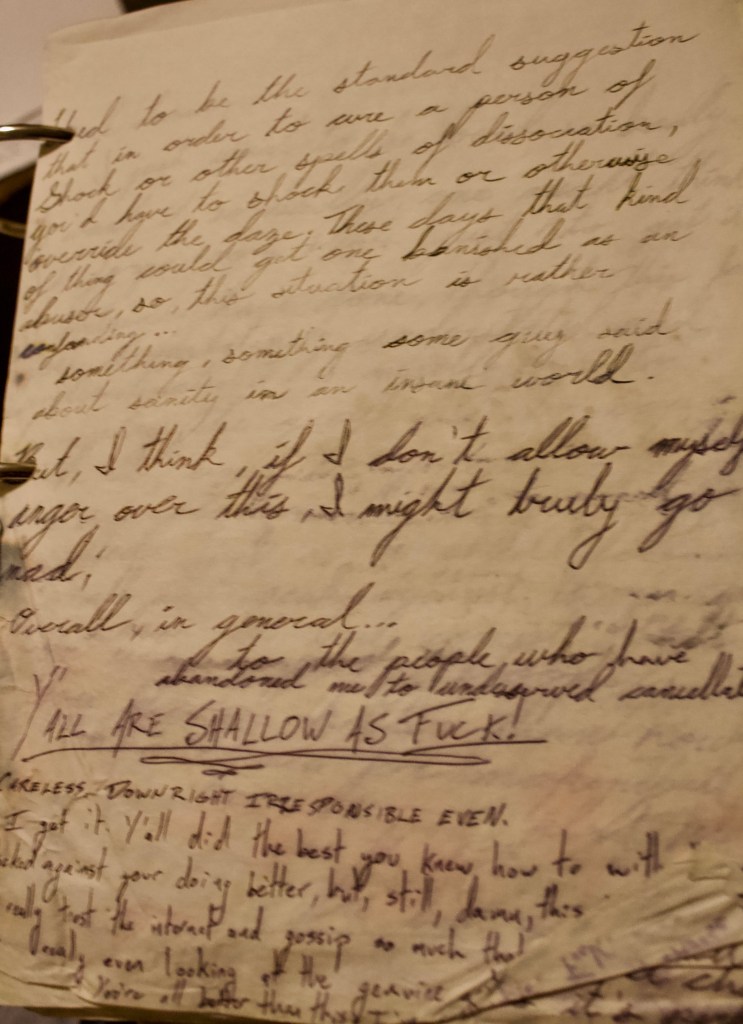 Used to be the standard suggestion
that in order to cure a person of
Shock or other spells of dissociation,
you'd have to shock them or otherwise
override the daze. These days that kind
of thing could get one banished as an
abuser, so, this situation is rather
confounding...
something, something some guy said
about sanity in an insane world.
But, I think, if I don't allow myself
anger over this, I might truly go
mad,
Overall, in general...
to the people who have
abandoned me to undeserved
Y'ALL ARE SHALLOW AS FUCK!
CARELESS. DOWNRIGHT IRRESPONSIBLE EVEN.
I get it. Y'all did the best you knew how to with
against your doing better, but, still, damn, this
really trust the internet and gossip so much tho!
even looking at the genuine
You're all better than this